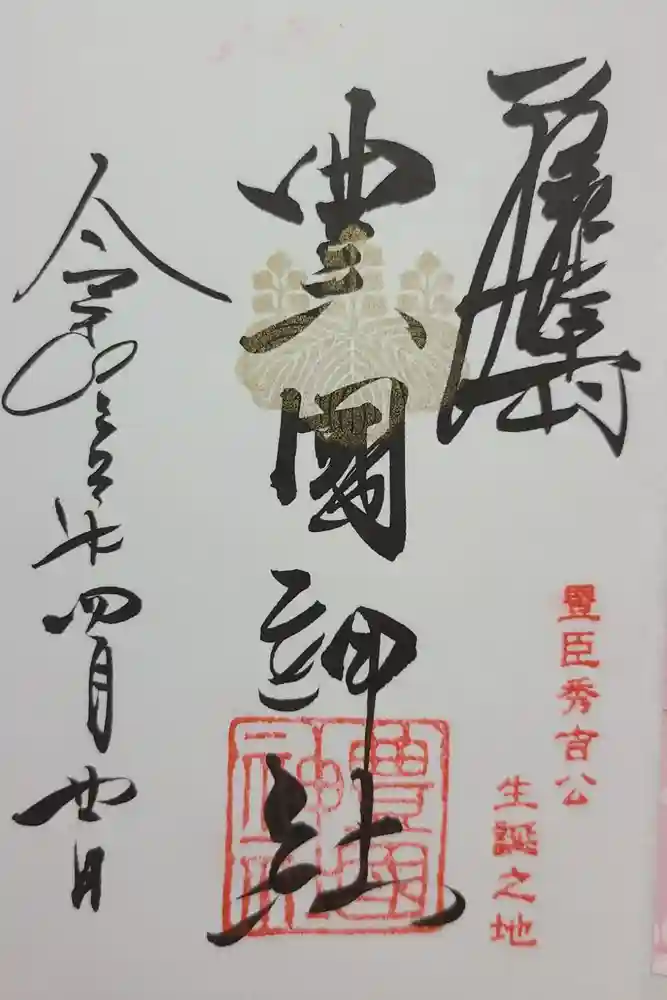 豊臣秀吉公
生誕之地
豊國神社
豊國神社印
令和年四月廿日